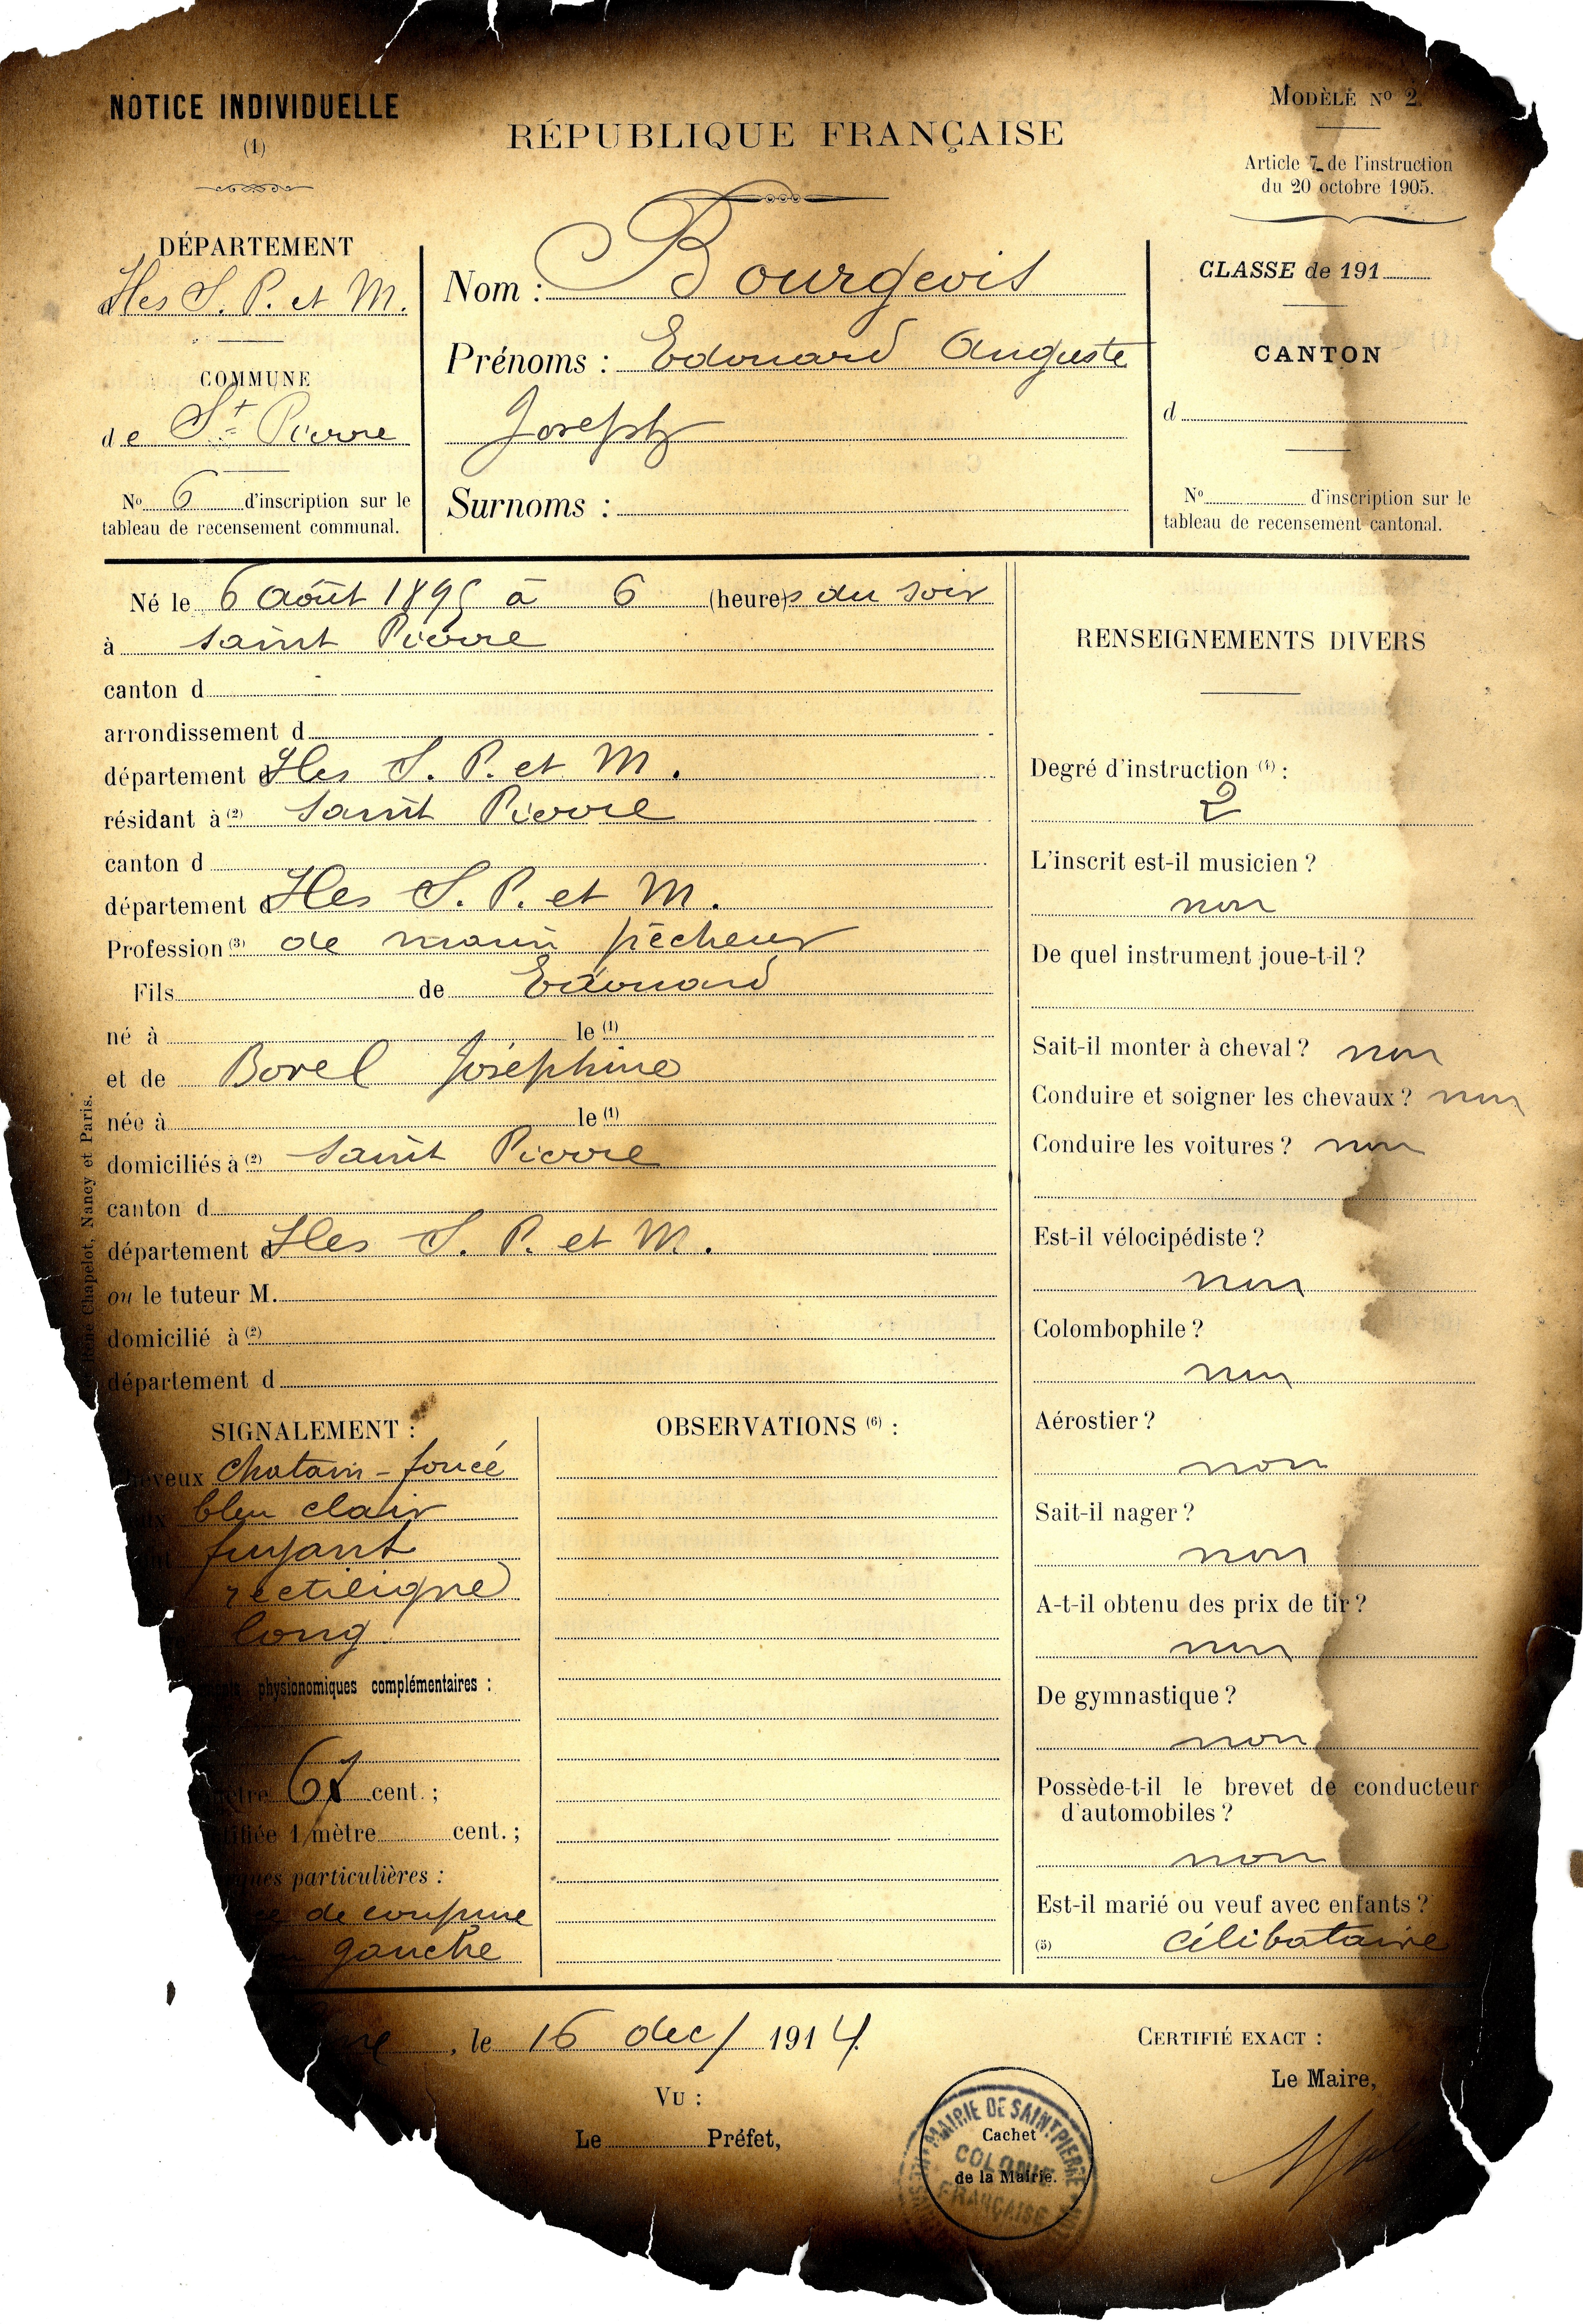 NOTICE INDIVIDUELLE
(1)
RÉPUBLIQUE FRANÇAISE
MODÈLE No 2.
Article 7 de l'instruction
du 20 octobre 1905.
DÉPARTEMENT
d Iles S. P. et M.
COMMUNE
de St Pierre
No 6 d'inscription sur le
tableau de recensement communal.
Nom : Bourgeois
Prénoms : Edouard Auguste
Joseph
Surnoms :
CLASSE de 191
CANTON
d
No d'inscription sur le
tableau de recensement cantonal.
Né le 6 Août 1895 à 6 (heure)s du soir
à Saint Pierre
canton d
arrondissement d
département d Iles S. P. et M.
résidant à (2) Saint Pierre
canton d
département d Iles S. P. et M.
Profession (3) de marin pêcheur
Fils de Edouard
né à le (1)
et de Borel Joséphine
née à le (1)
domiciliés à (2) Saint Pierre
canton d
département d Iles S. P. et M.
ou le tuteur M.
domicilié à (2)
département d
René Chapelot, Nancy et Paris.
SIGNALEMENT :
Cheveux Chatain-foncé
bleu clair
fuyant
rectiligne
long
physionomiques complémentaires :
mètre 67 cent. ;
1 mètre cent. ;
particulières :
de coupure
gauche
OBSERVATIONS (6) :
RENSEIGNEMENTS DIVERS
Degré d'instruction (4) :
2
L'inscrit est-il musicien ?
non
De quel instrument joue-t-il ?
Sait-il monter à cheval ? non
Conduire et soigner les chevaux ? non
Conduire les voitures ? non
Est-il vélocipédiste ?
non
Colombophile ?
non
Aérostier ?
non
Sait-il nager ?
non
A-t-il obtenu des prix de tir ?
non
De gymnastique ?
non
Possède-t-il le brevet de conducteur
d'automobiles ?
non
Est-il marié ou veuf avec enfants ?
(5) Célibataire
, le 16 dec/ 1914.
VU :
Le Préfet,
MAIRIE DE SAINT PIERRE
COLONIE
FRANÇAISE
Cachet
de la Mairie.
CERTIFIÉ EXACT :
Le Maire,